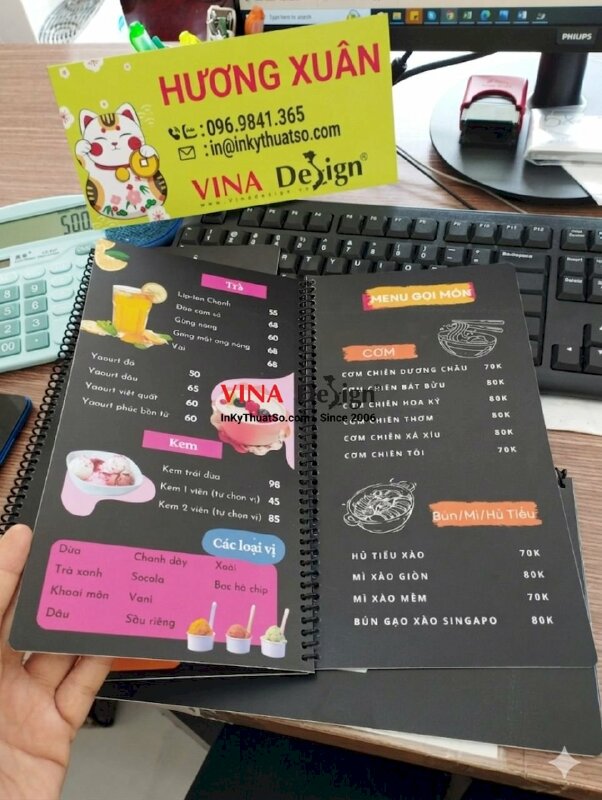 PHILIPS
HƯƠNG XUÂN
Zalo : 096.9841.365
: in@inkythuatso.com
VINA Design®
www.vinadesign.vn
500
Trà
Lip-ton Chanh 55
Đào cam sả 68
Gừng nóng 60
Gừng mật ong nóng 68
Vải 68
Yaourt đá 50
Yaourt dâu 65
Yaourt việt quất 60
Yaourt phúc bồn tử 60
Kem
Kem trái dừa 98
Kem 1 viên (tự chọn vị) 45
Kem 2 viên (tự chọn vị) 85
Các loại vị
Dừa Chanh dây Xoài
Trà xanh Socola Bạc hà chip
Khoai môn Vani
Dâu Sầu riêng
MENU GỌI MÓN
CƠM
CƠM CHIÊN DƯƠNG CHÂU 70K
CƠM CHIÊN BÁT BỬU 80K
CƠM CHIÊN HOA KỲ 80K
CƠM CHIÊN THƠM 80K
CƠM CHIÊN XÁ XÍU 80K
CƠM CHIÊN TỎI 70K
Bún/Mì/Hủ Tiếu
HỦ TIẾU XÀO 70K
MÌ XÀO GIÒN 80K
MÌ XÀO MỀM 70K
BÚN GẠO XÀO SINGAPO 80K
VINA Design
InKyThuatSo.com Since 2006